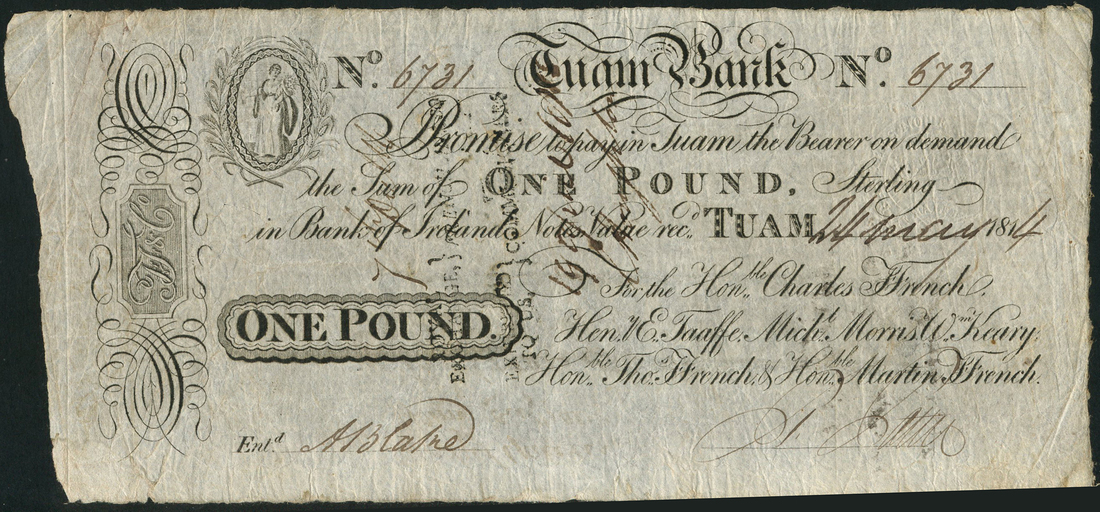 No. 6731 Tuam Bank No. 6731
I Promise to pay in Tuam the Bearer on demand
the Sum of ONE POUND. Sterling
in Bank of Ireland Notes Value recd. TUAM 24 may 1814
For the Honble. Charles Ffrench,
ONE POUND.
Heny. E. Taaffe, Michl. Morris, Wm. Keary,
Honble. Thos. Ffrench, & Honble. Martin Ffrench.
Entd. ABlake